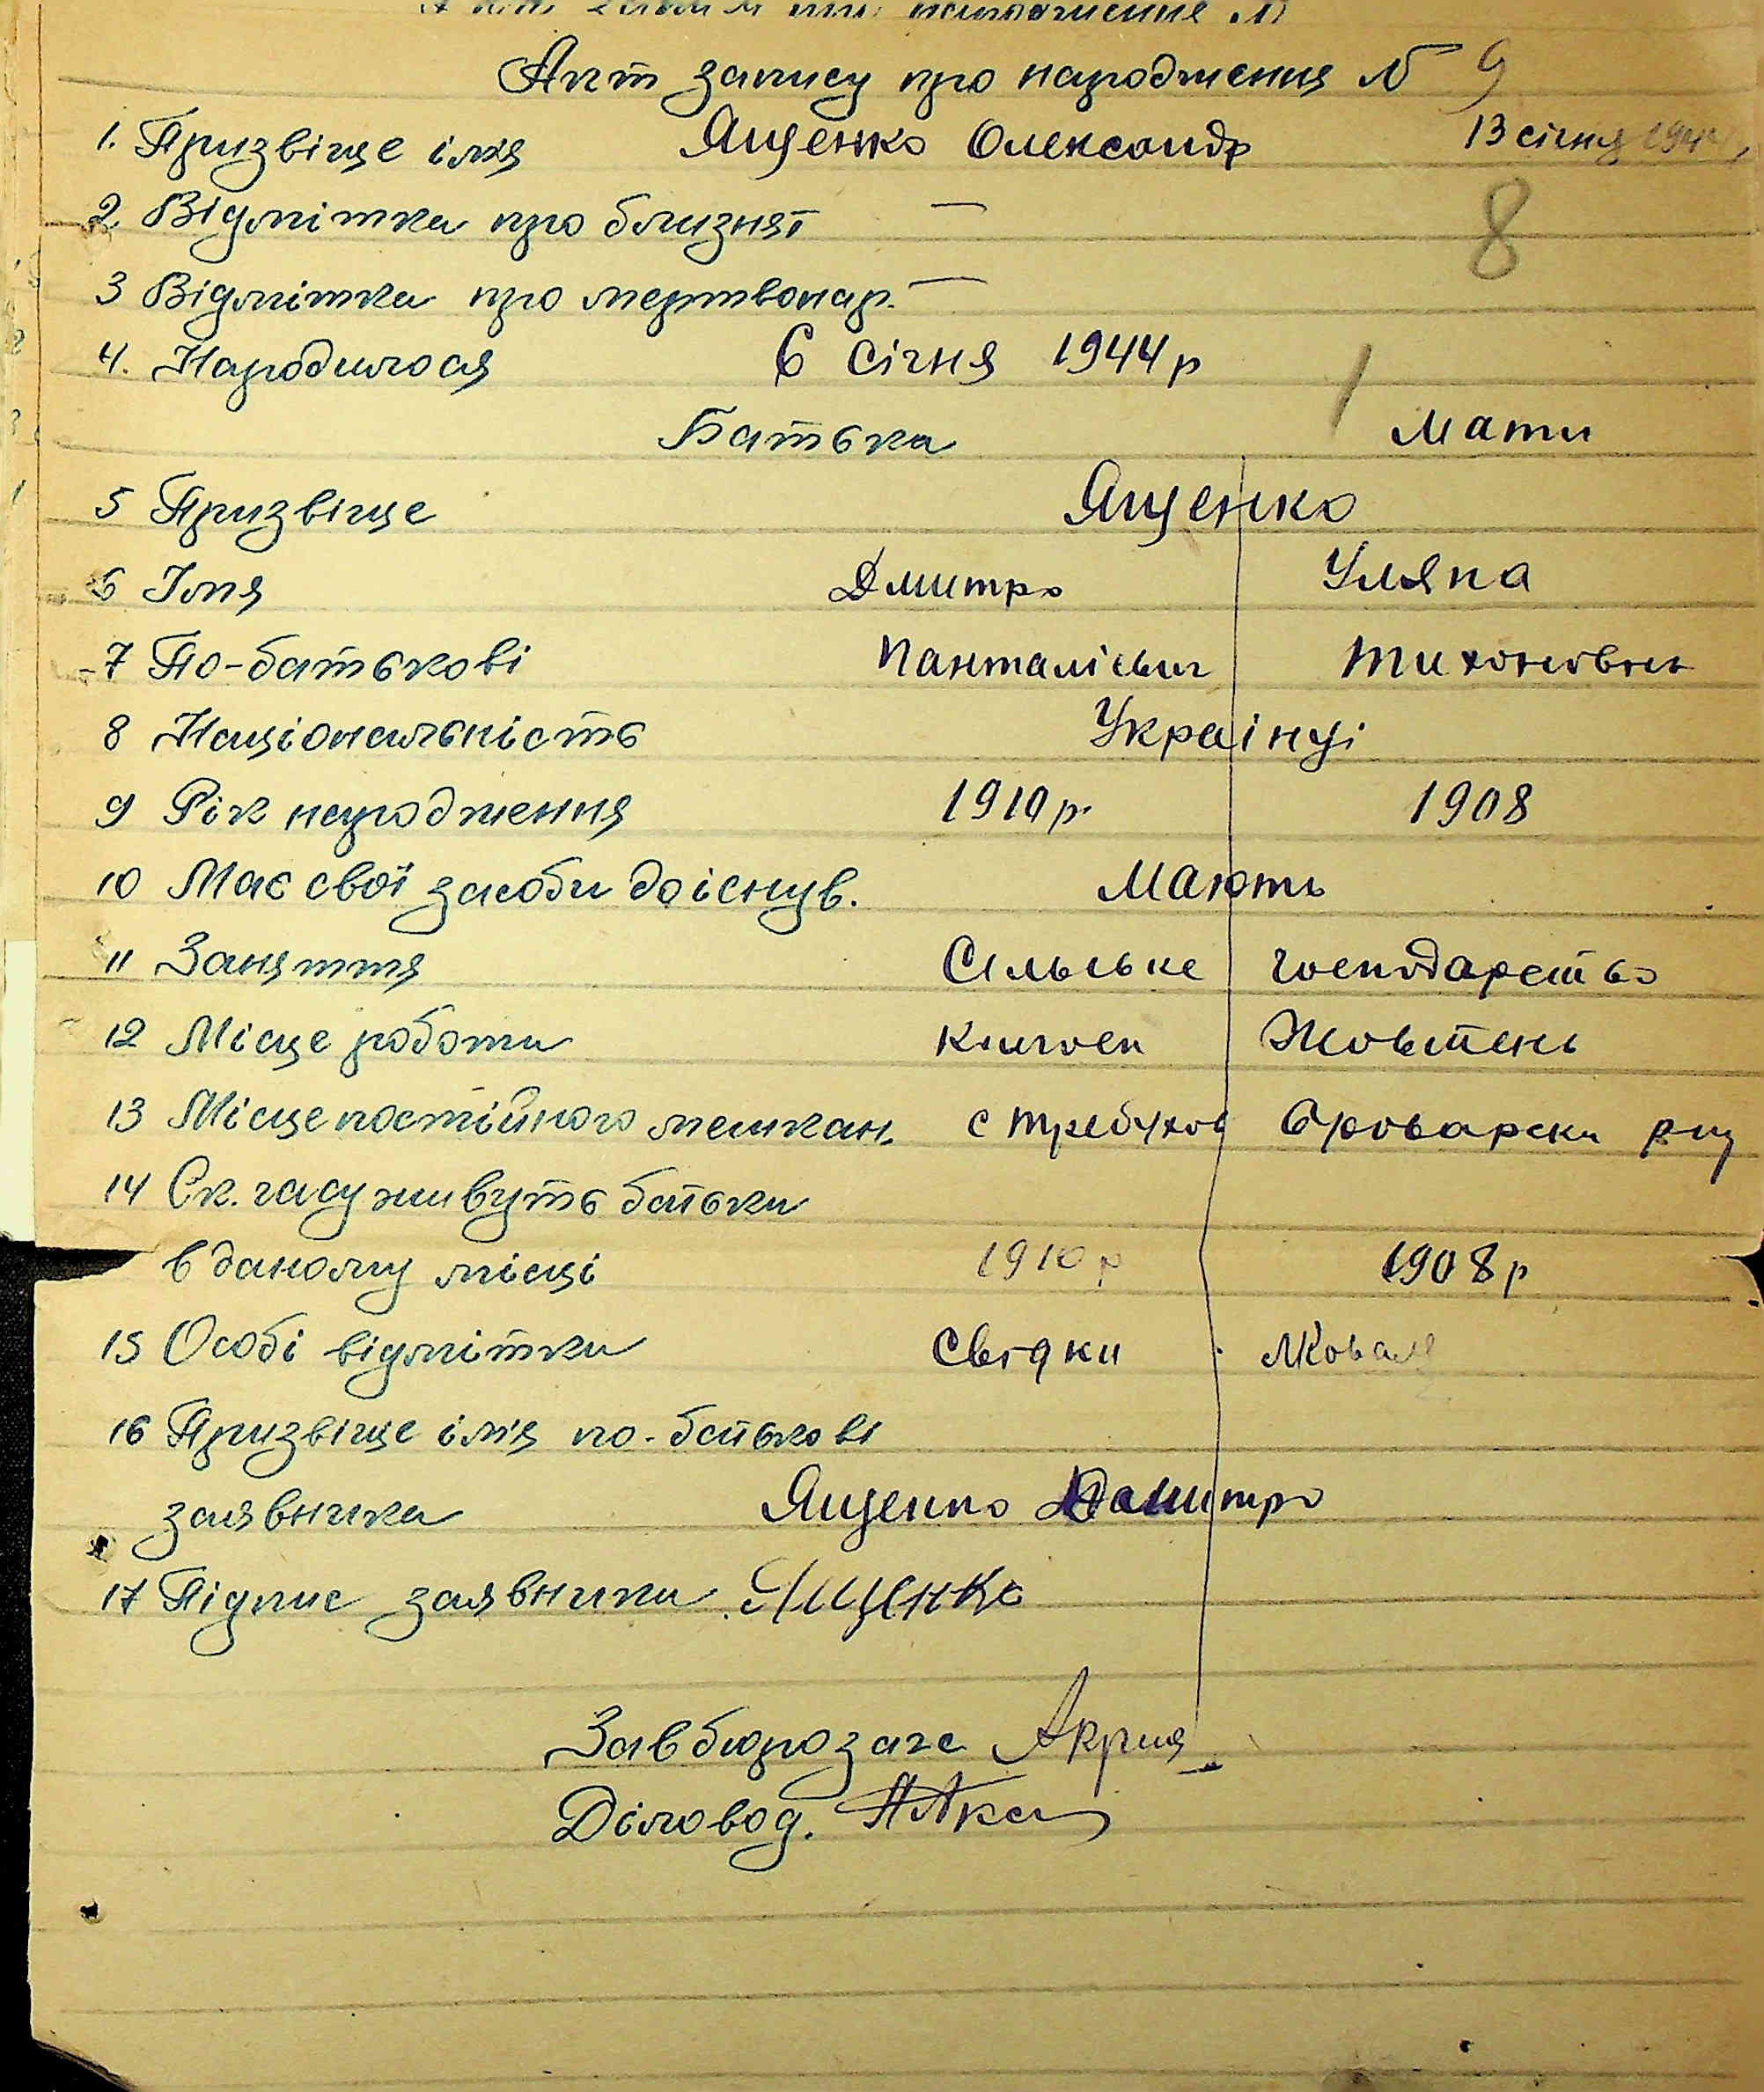 Акт запису про народження №
Акт запису про народження № 9
1. Призвіще імя Ященко Олександр 13 січня 1944
2 Відмітка про близнят — 8
3 Відмітка про мертвонар. —
4. Народилося 6 Січня 1944 р
Батька Мати
5 Призвіще Ященко
6 Імя Дмитро Уляна
7 По-батькові Панталієвич Тихоновна
8 Національність Українці
9 Рік народження 1910 р. 1908
10 Має свої засоби до існув. Мають
11 Заняття Сільське господарство
12 Місце роботи Жовтень
13 Місце постійного мешкан. с Требухов Броварськ р-ну
14 Ск. часу живуть батьки
в даному місці 1910 р 1908 р
15 Особі відмітки Свідки Коваль
16 Призвіще імя по-батькові
заявника Ященко Дмитро
17 Підпис заявника Ященко
Зав бюро загс
Діловод.